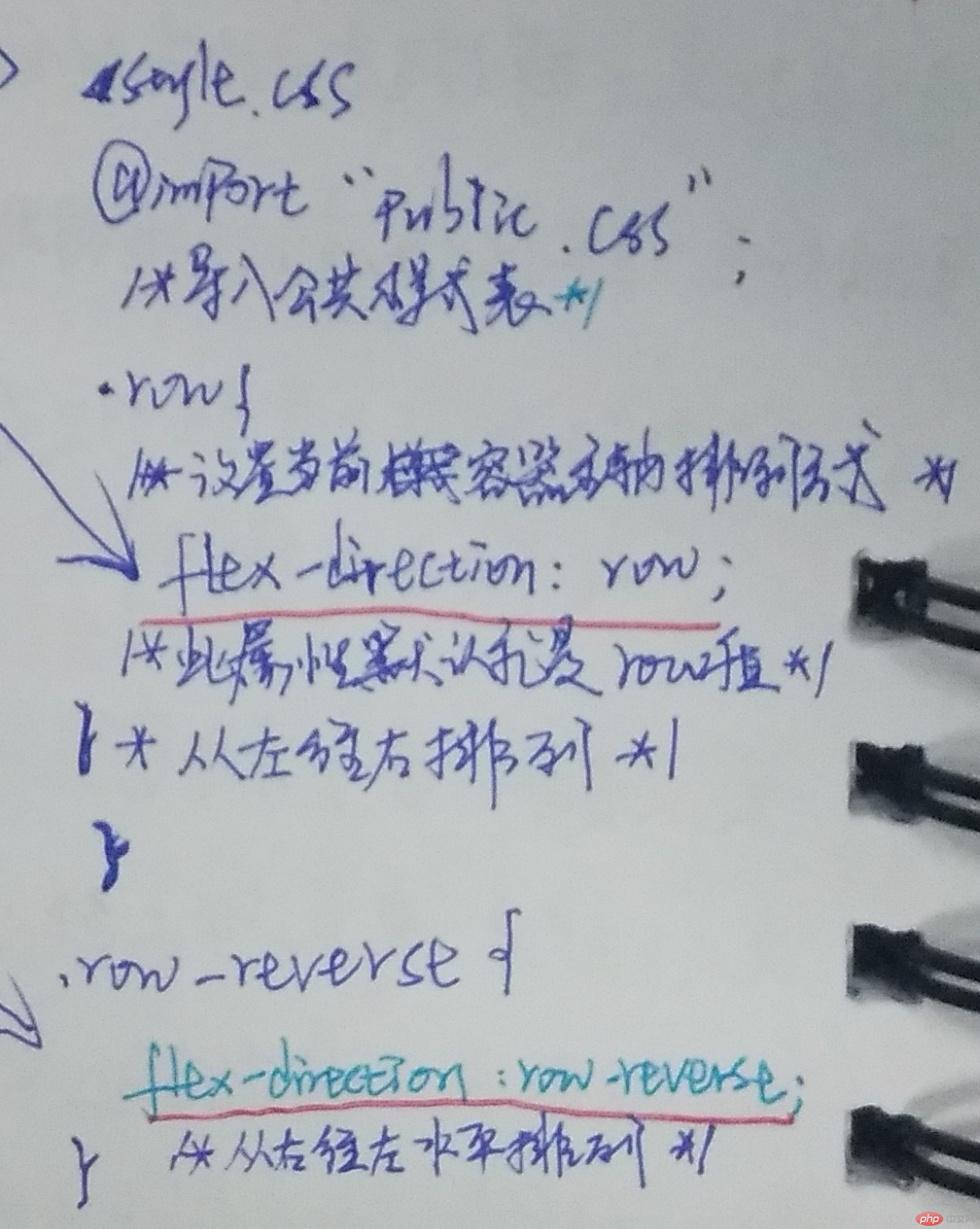 style.css
@import "public.css";
/*导入公共样式表*/
.row{
/*设置当前 容器主轴排列方式 */
flex-direction: row;
/*此属性默认就是 row值*/
* 从左往右排列 */
}
.row-reverse {
flex-direction:row-reverse;
} /*从右往左水平排列 */
php